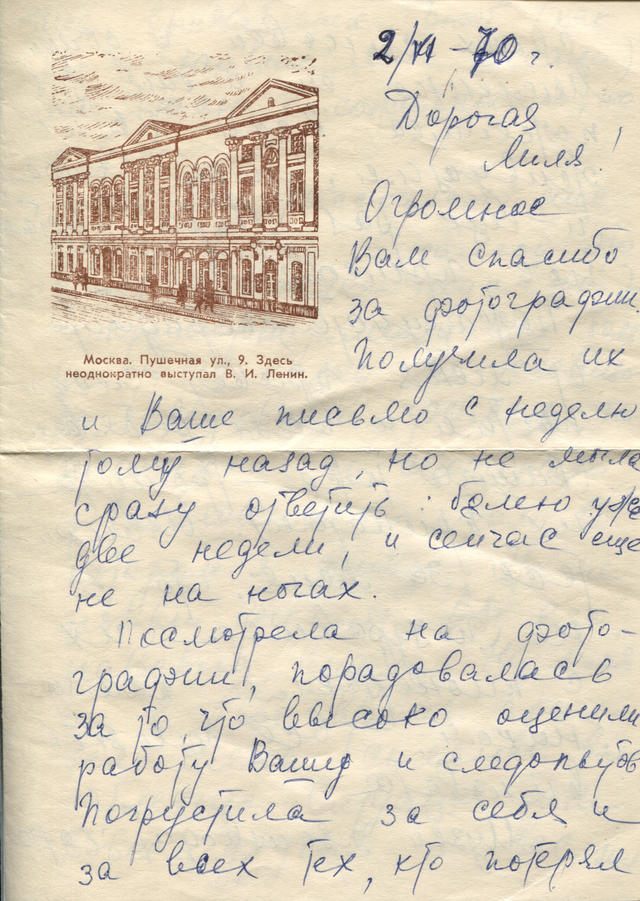 2/XI - 70 г.
Дорогая
Лиля!
Огромное
Вам спасибо
за фотографии.
Получила их
Москва. Пушечная ул., 9. Здесь
неоднократно выступал В. И. Ленин.
и Ваше письмо с неделю
тому назад, но не могла
сразу ответить: болею уже
две недели, и сейчас еще
не на ногах.
Посмотрела на фото-
графии, порадовалась
за то, что высоко оценили
работу Вашу и следопытов
Погрустила за себя и
за всех тех, кто потерял